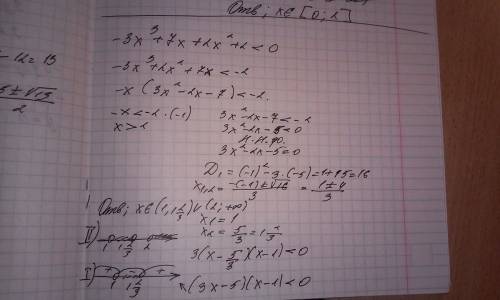 Отв; x ∈ [0; 2]
-3x³+7x+2x²+2<0
-12=13
-3x³+2x²+7x<-2
5±√13
2
-x(3x²-2x-7)<-2.
-x<-2·(-1) 3x²-2x-7<-2
x>2 3x²-2x-5<0
Н.Н.ф.
3x²-2x-5=0
D₁=(-1)²-3·(-5)=1+15=16
x₁,₂=-(-1)±√16/3=1±4/3
Отв; x∈(1,1 2/3)∪(2;+∞)
x₁=1
x₂=5/3=1 2/3
II) 1 1 2/3 2
3(x-5/3)(x-1)<0
I) + - + 1 1 2/3
(3x-5)(x-1)<0